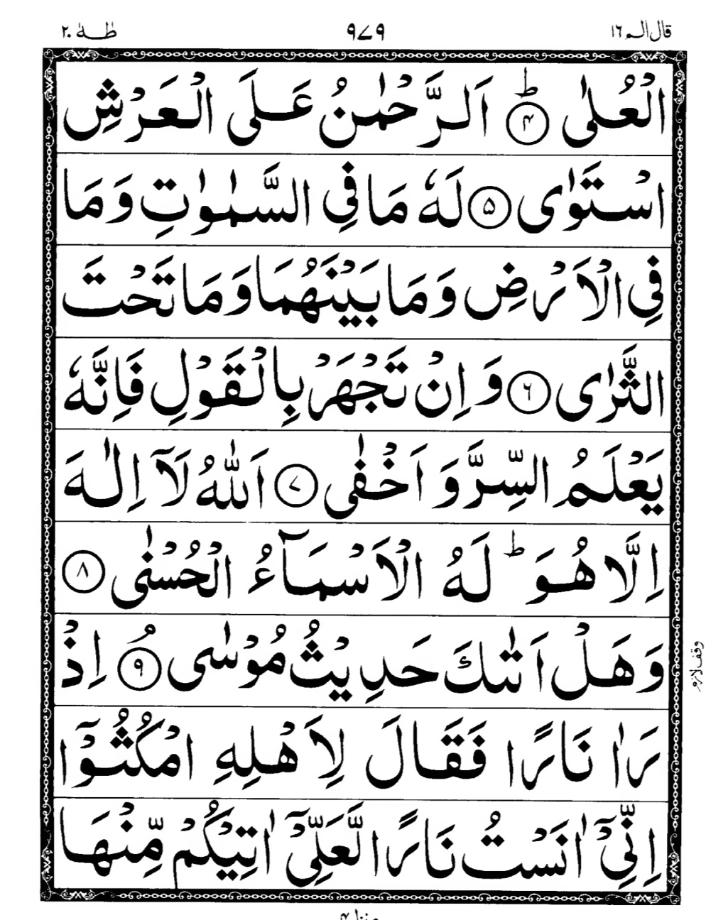 قال الم ١٦ ٩٧٩ طٰهٰ ٢٠
الْعُلٰى ؕ﴿۴﴾ اَلرَّحْمٰنُ عَلَى الْعَرْشِ
اسْتَوٰى ﴿۵﴾ لَهٗ مَا فِى السَّمٰوٰتِ وَمَا
فِى الْاَرْضِ وَمَا بَيْنَهُمَا وَمَا تَحْتَ
الثَّرٰى ﴿۶﴾ وَاِنْ تَجْهَرْ بِالْقَوْلِ فَاِنَّهٗ
يَعْلَمُ السِّرَّ وَاَخْفٰى ﴿۷﴾ اَللّٰهُ لَاۤ اِلٰهَ
اِلَّا هُوَ ؕ لَهُ الْاَسْمَآءُ الْحُسْنٰى ﴿۸﴾
وَهَلْ اَتٰٮكَ حَدِيْثُ مُوْسٰى ۘ﴿۹﴾ اِذْ
وقف لازم
رَاٰ نَارًا فَقَالَ لِاَهْلِهِ امْكُثُوْۤا
اِنِّىْۤ اٰنَسْتُ نَارًا لَّعَلِّىْۤ اٰتِيْكُمْ مِّنْهَا